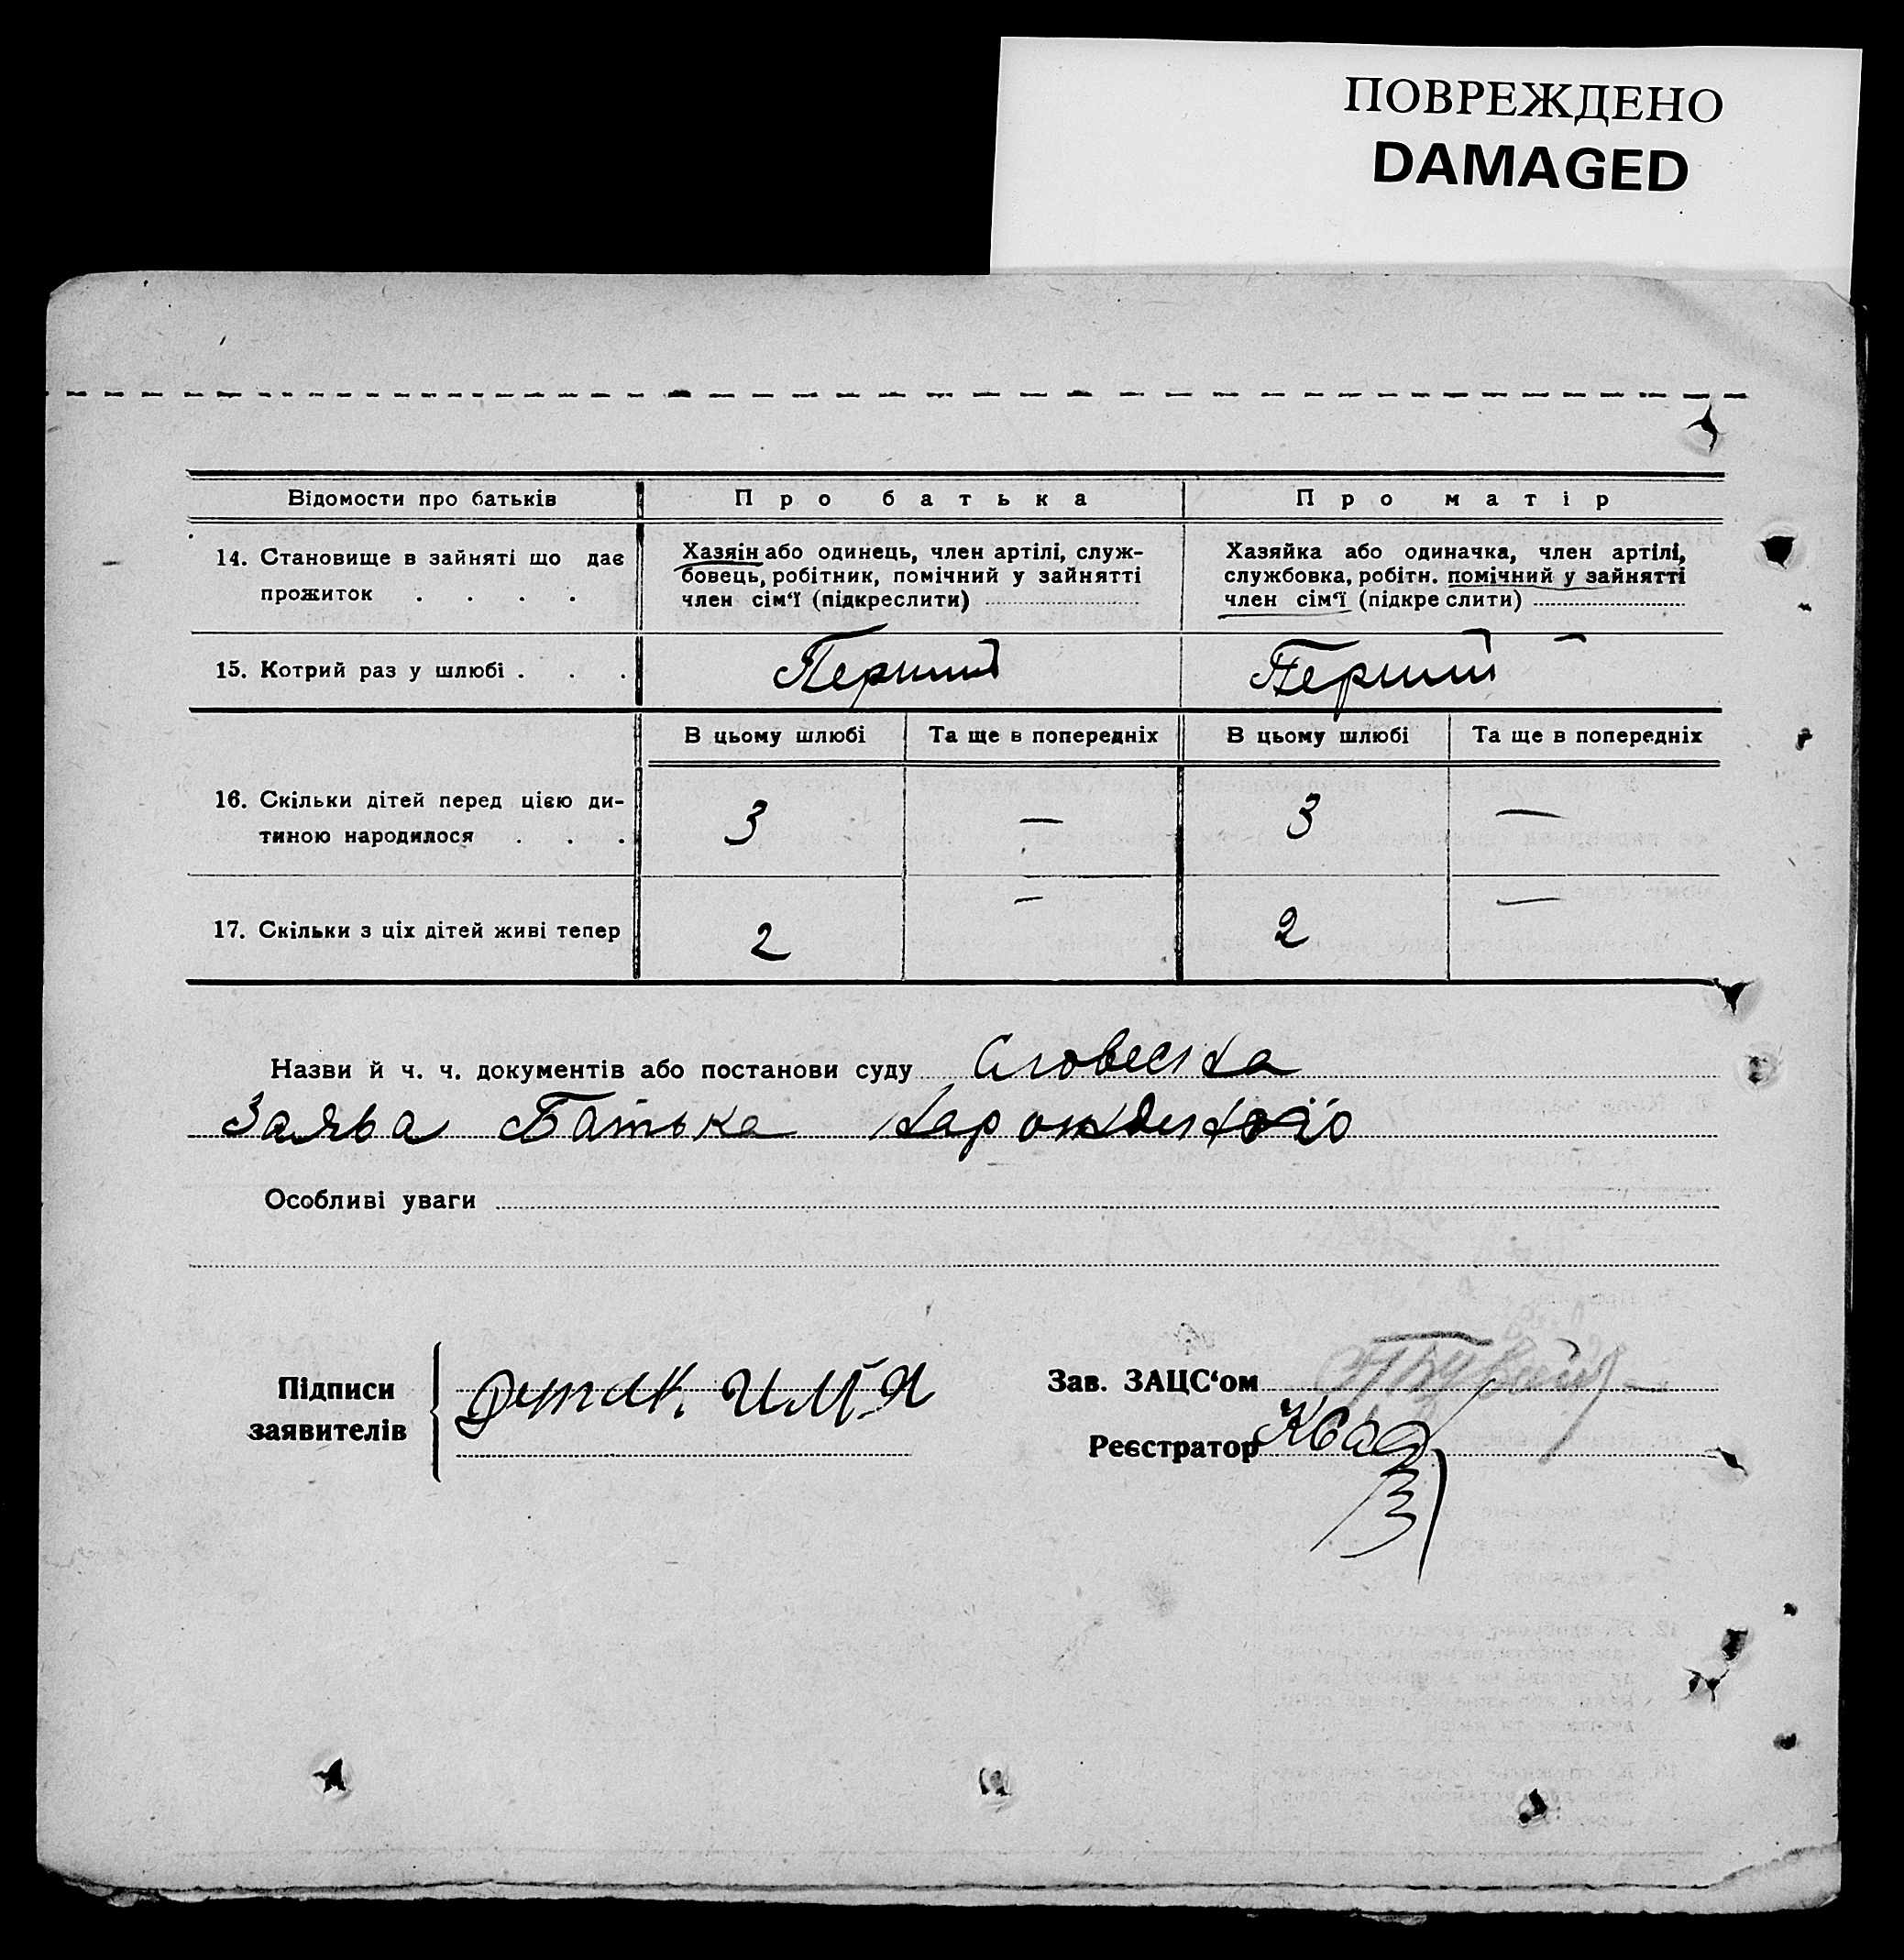 ПОВРЕЖДЕНО
DAMAGED
Відомости про батьків
Про батька
Про матір
14. Становище в зайняті що дає
прожиток . . . .
Хазяін або одинець, член артілі, служ-
бовець, робітник, помічний у зайнятті
член сім‘ї (підкреслити)
Хазяйка або одиначка, член артілі,
службовка, робітн. помічний у зайнятті
член сім‘ї (підкреслити)
15. Котрий раз у шлюбі . . .
Перший
Перший
В цьому шлюбі
Та ще в попередніх
В цьому шлюбі
Та ще в попередніх
16. Скільки дітей перед цією ди-
тиною народилося . . .
3
—
3
—
17. Скільки з ціх дітей живі тепер
2
—
2
—
Назви й ч. ч. документів або постанови суду Словесна
Заява Батька
Особливі уваги
Підписи
заявителів
Зав. ЗАЦС‘ом
Реєстратор